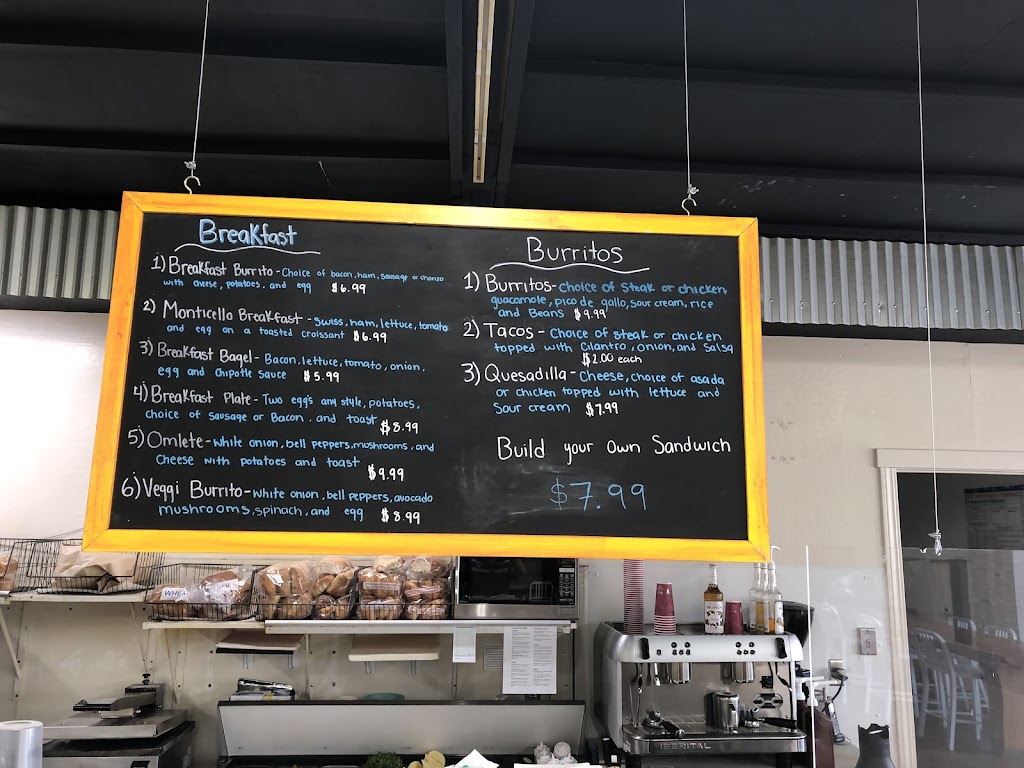 Breakfast
1) Breakfast Burrito - Choice of bacon, ham, sausage or chorizo
with cheese, potatoes, and egg $6.99
2) Monticello Breakfast - Swiss, ham, lettuce, tomato
and egg on a toasted croissant $6.99
3) Breakfast Bagel - Bacon, lettuce, tomato, onion,
egg and Chipotle sauce $5.99
4) Breakfast Plate - Two egg's any style, potatoes,
choice of sausage or Bacon, and toast $8.99
5) Omlete - white onion, bell peppers, mushrooms, and
Cheese with potatoes and toast $9.99
6) Veggi Burrito - white onion, bell peppers, avocado
mushrooms, spinach, and egg $8.99
Burritos
1) Burritos - choice of steak or chicken
guacamole, pico de gallo, sour cream, rice
and Beans $9.99
2) Tacos - Choice of steak or chicken
topped with Cilantro, onion, and Salsa
$2.00 each
3) Quesadilla - Cheese, choice of asada
or chicken topped with lettuce and
Sour cream $7.99
Build your Own Sandwich
$7.99
IBERITAL